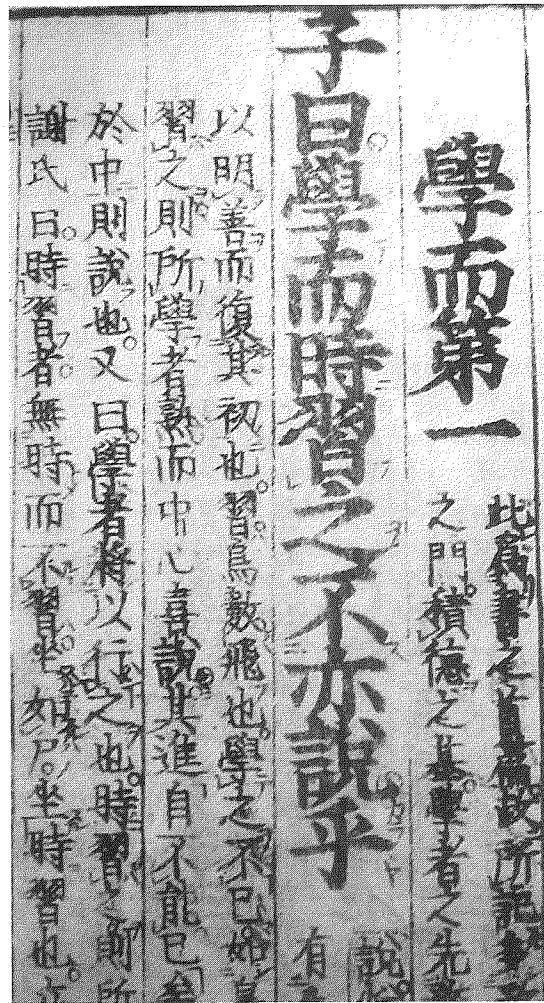 學而第一
此爲書之首篇故所記多
之門。積德之基。學者之先
子曰。學而時習之不亦說乎
說
有
以明善而復其初也。習。鳥數飛也。學之不已如鳥
習之則所學者熟。而中心喜說。其進自不能已矣
於中則說也。又曰。學者將以行之也。時習之則所
謝氏曰。時習者。無時而不習。坐如尸。坐時習也。立